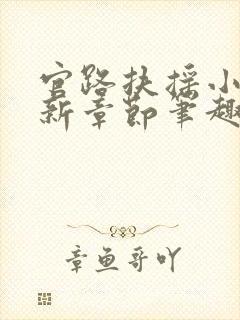 官路扶摇小
新章节笔趣
章鱼哥吖